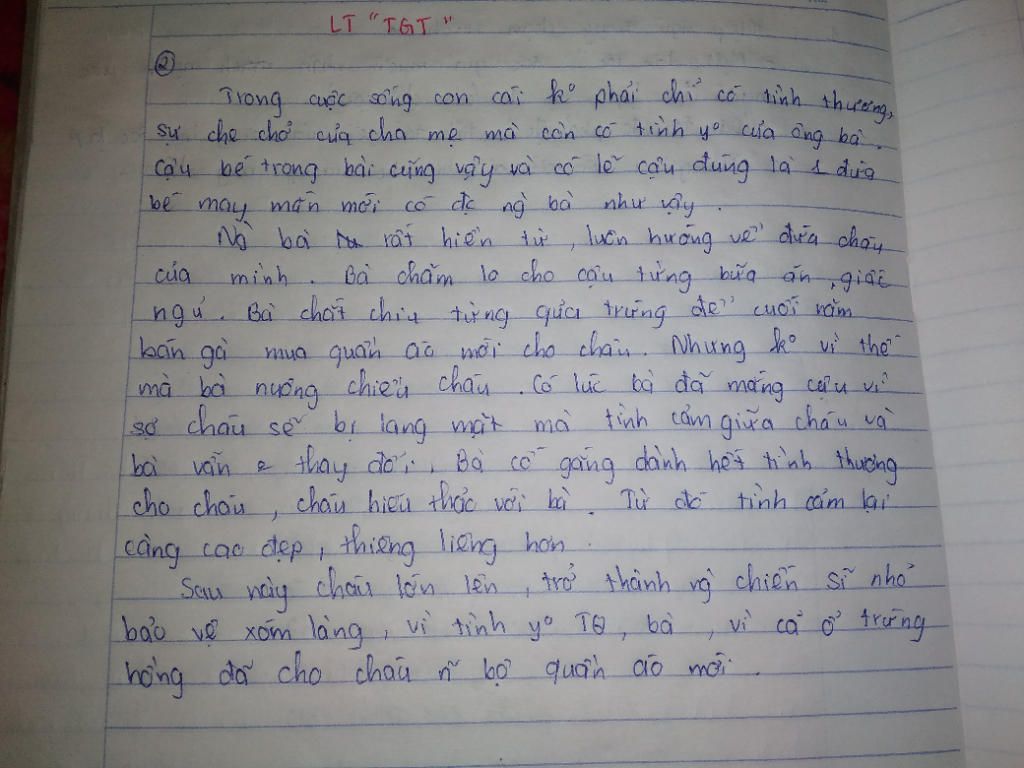 LT "TGT"
②
Trong cuộc sống con cái ko phải chỉ có tình thương,
sự che chở của cha mẹ mà còn có tình yo của ông bà.
Cậu bé trong bài cũng vậy và có lẽ cậu đúng là 1 đứa
bé may mắn mới có đc ng bà như vậy.
Ng bà rất hiền từ, luôn hướng về đứa cháu
của mình. Bà chăm lo cho cậu từng bữa ăn, giấc
ngủ. Bà chắt chiu từng qủa trứng để cuối năm
bán gà mua quần áo mới cho cháu. Nhưng ko vì thế
mà bà nuông chiều cháu. Có lúc bà đã mắng cậu vì
sợ cháu sẽ bị lang mặt mà tình cảm giữa cháu và
bà vẫn thay đổi. Bà cố gắng dành hết tình thương
cho cháu, cháu hiếu thảo với bà. Từ đó tình cảm lại
càng cao đẹp, thiêng liêng hơn.
Sau này cháu lớn lên, trở thành ng chiến sĩ nhỏ
bảo vệ xóm làng, vì tình yo TQ, bà, vì cả ổ trứng
hồng đã cho cháu n~ bộ quần áo mới.